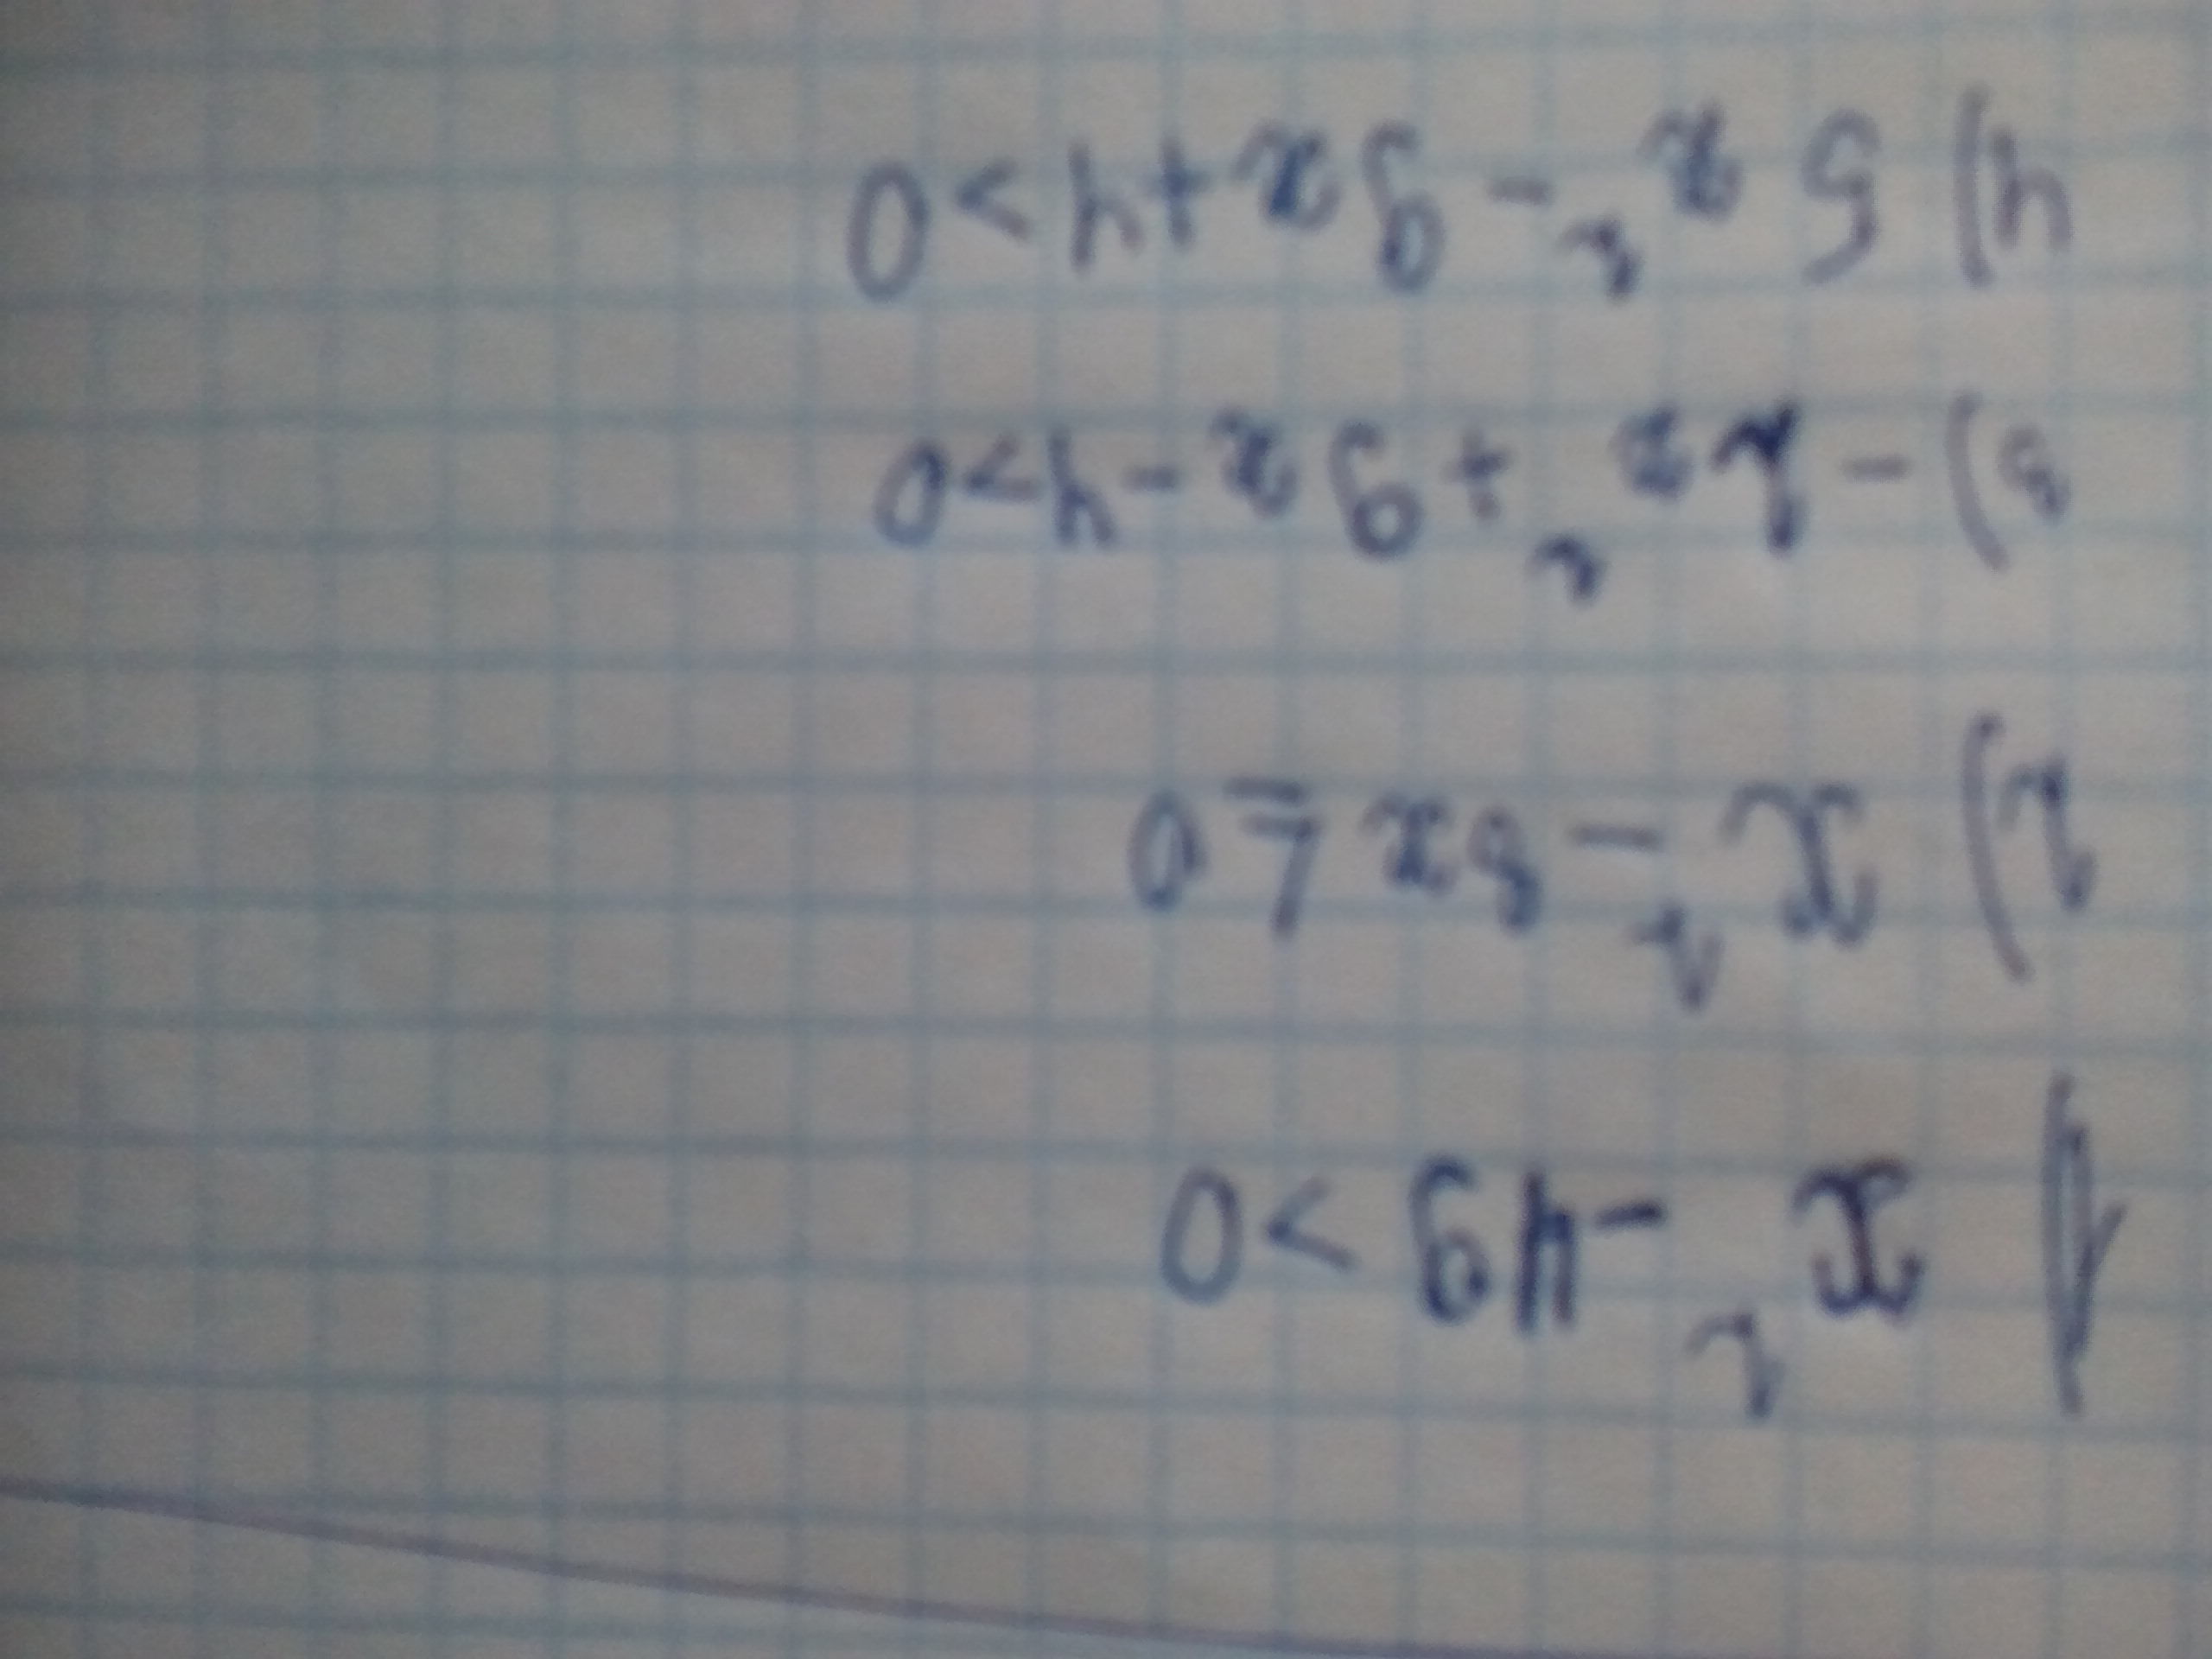 1) x² - 49 > 0
2) x² - 3x ≤ 0
3) - 2x² + 9x - 4 > 0
4) 5x² - 9x + 4 > 0